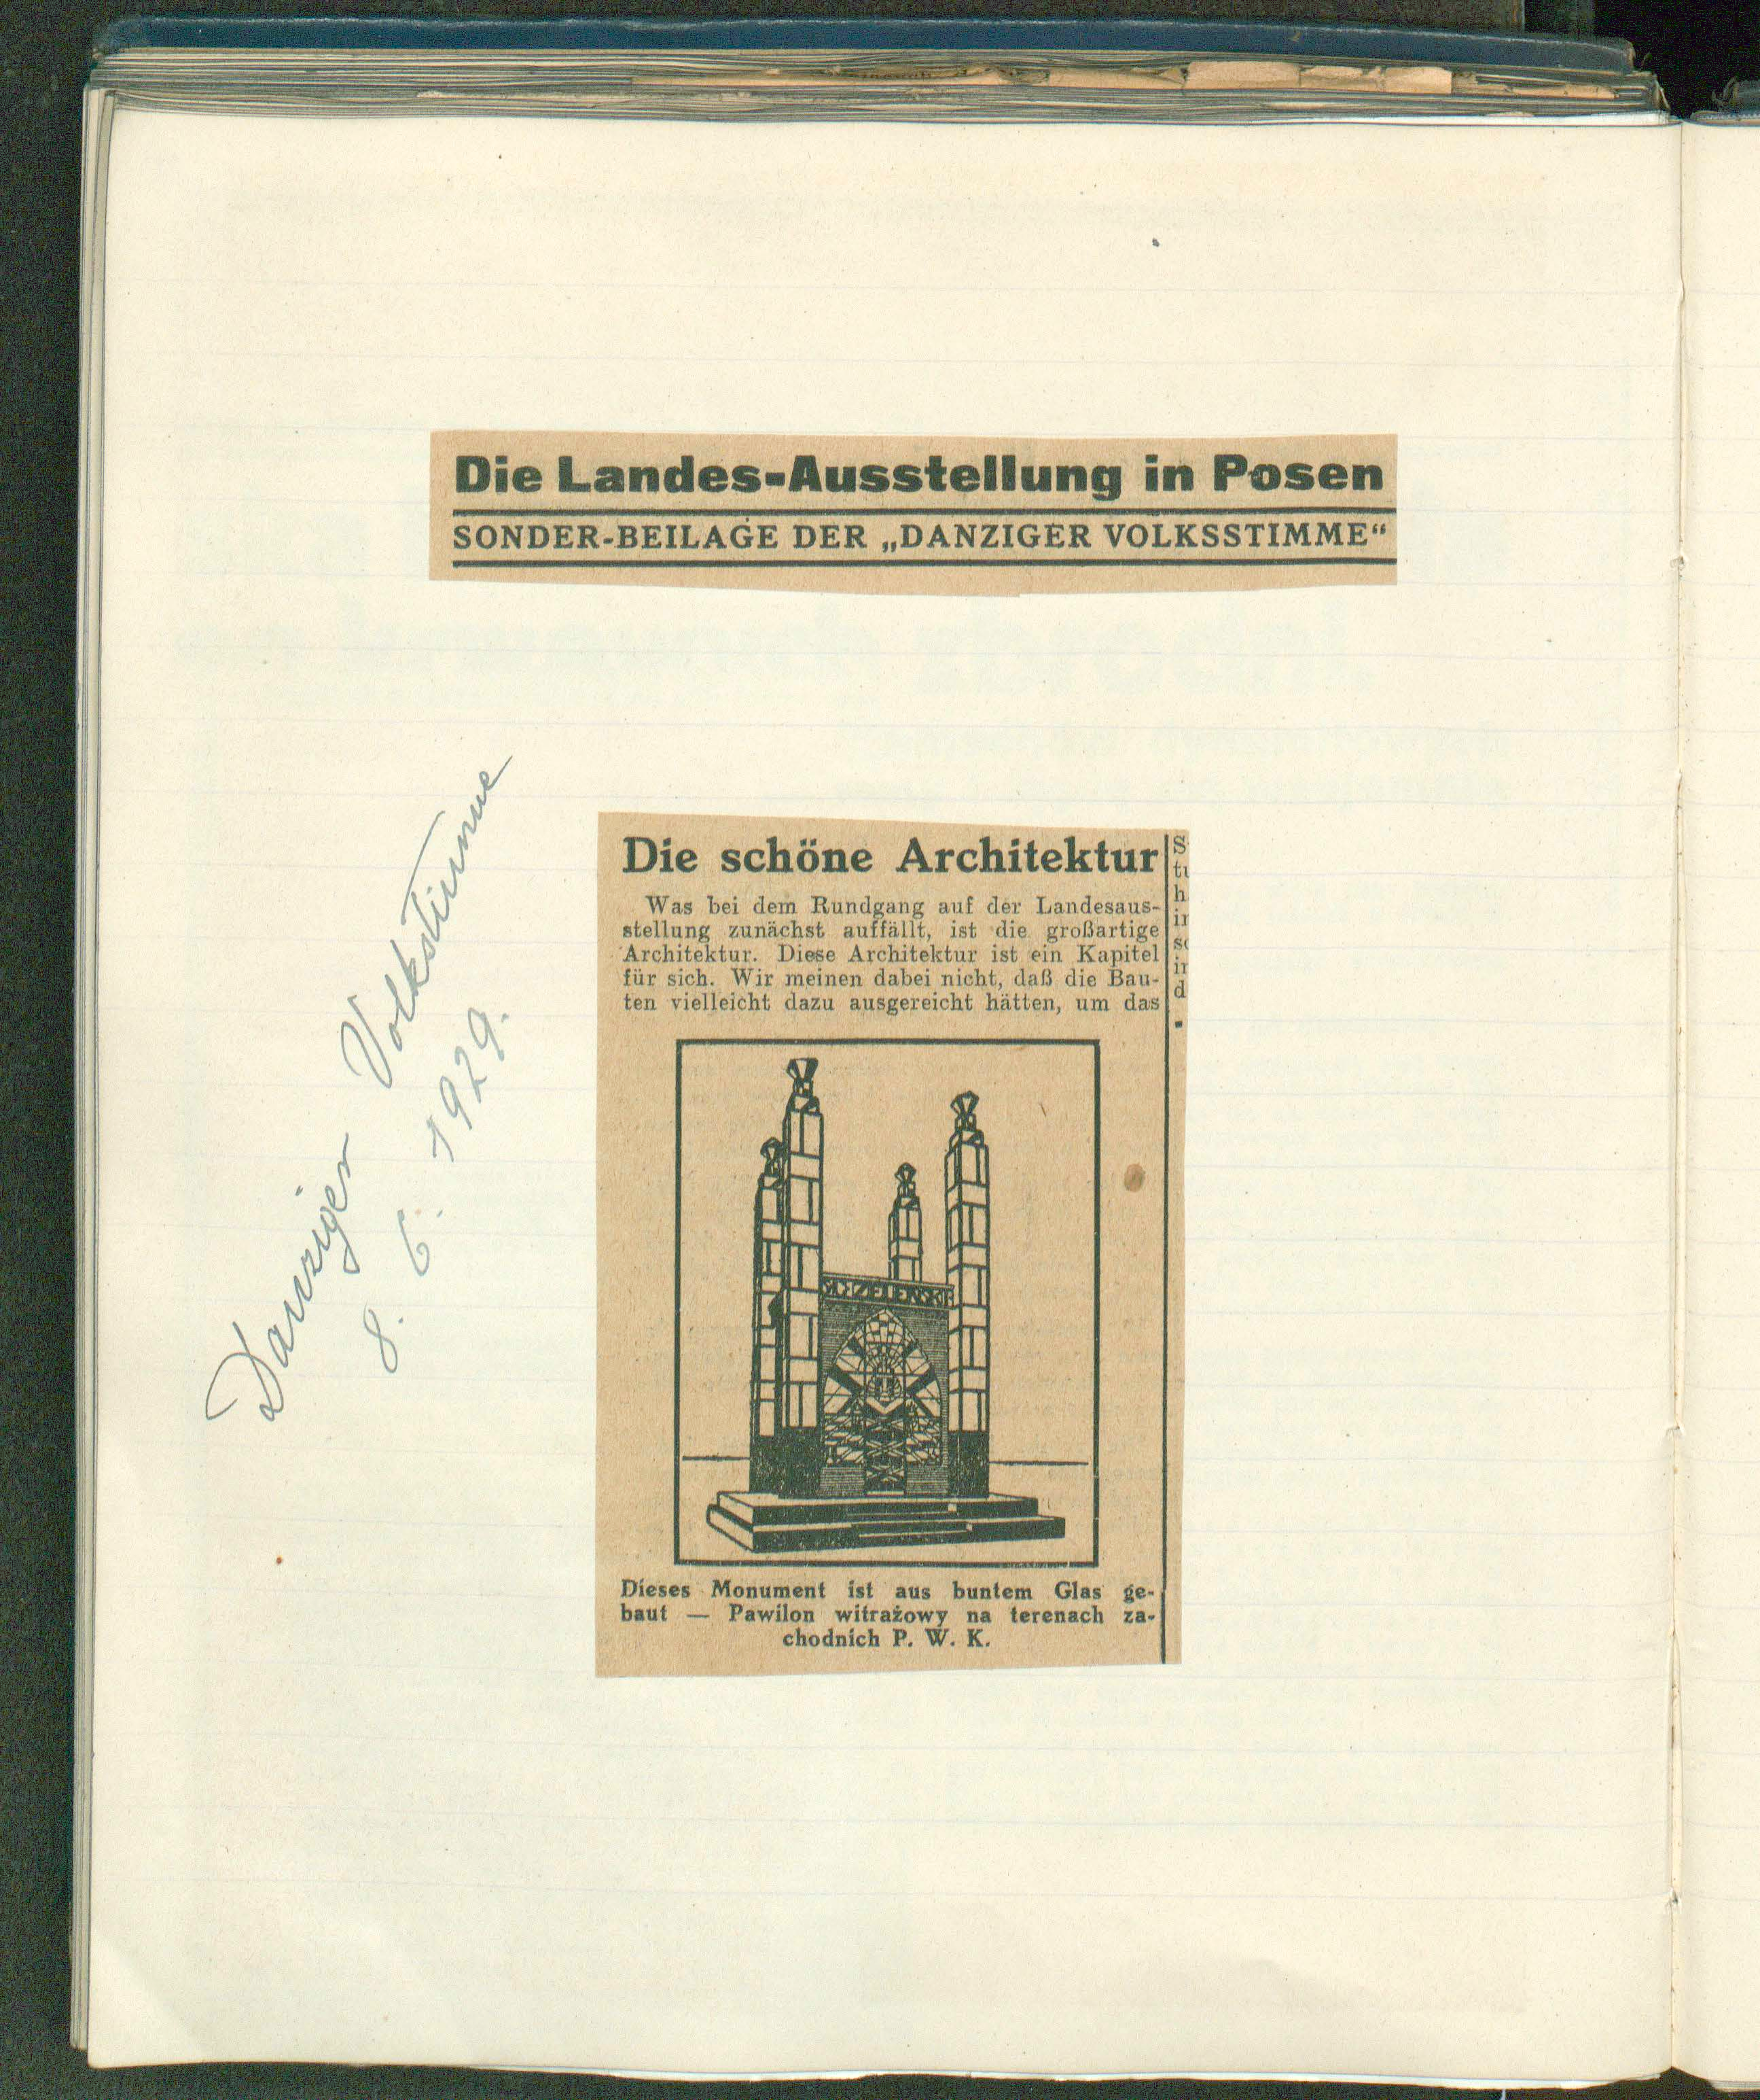 Die Landes-Ausstellung in Posen
SONDER-BEILAGE DER „DANZIGER VOLKSSTIMME“
Danziger Volkstimme
8. 6. 1929.
Die schöne Architektur
Was bei dem Rundgang auf der Landesaus-
stellung zunächst auffällt, ist die großartige
Architektur. Diese Architektur ist ein Kapitel
für sich. Wir meinen dabei nicht, daß die Bau-
ten vielleicht dazu ausgereicht hätten, um das
ZELEŃSKI
Dieses Monument ist aus buntem Glas ge-
baut — Pawilon witrażowy na terenach za-
chodnich P. W. K.